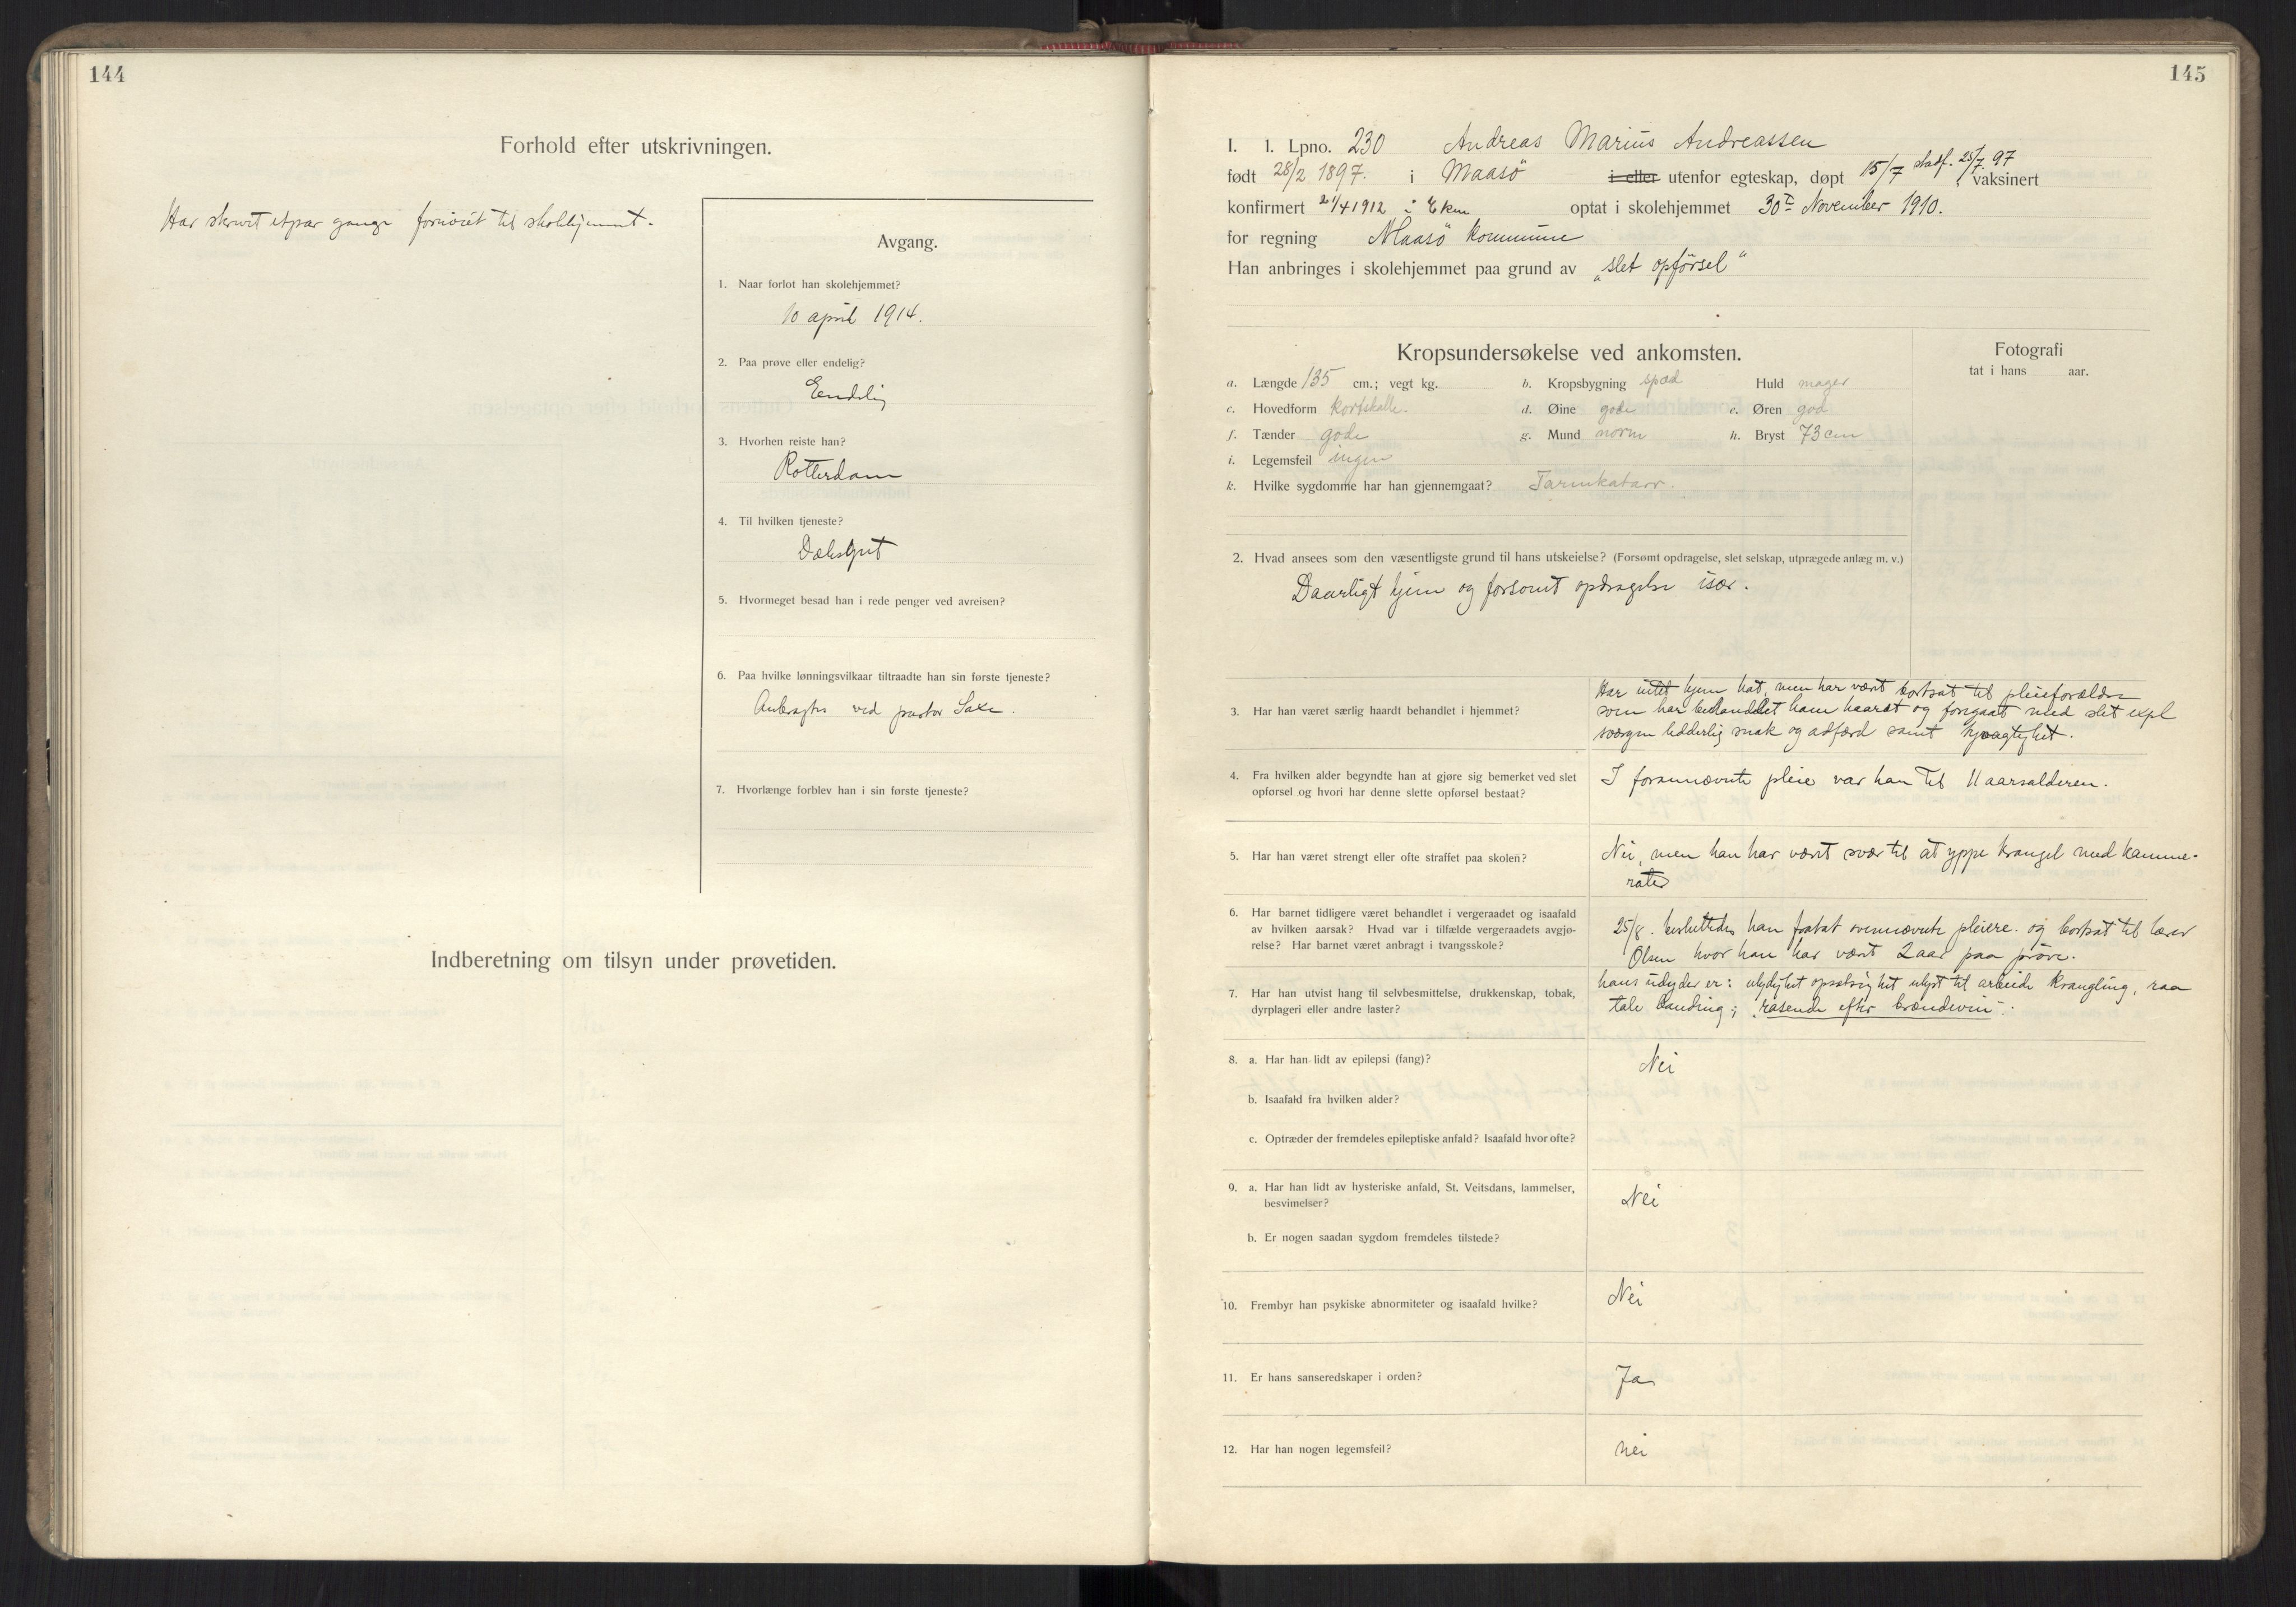 144
Forhold efter utskrivningen.
Har skrevet etpar gange fornøiet til skolehjemmet.
Avgang.
1. Naar forlot han skolehjemmet?
10 april 1914.
2. Paa prøve eller endelig?
Endelig
3. Hvorhen reiste han?
Rotterdam
4. Til hvilken tjeneste?
Dæksgut
5. Hvormeget besad han i rede penger ved avreisen?
6. Paa hvilke lønningsvilkaar tiltraadte han sin første tjeneste?
Anbragtes ved pastor Saxe.
7. Hvorlænge forblev han i sin første tjeneste?
Indberetning om tilsyn under prøvetiden.
145
I. 1. Lpno. 230 Andreas Marius Andreassen
født 28/2 1897. i Maasö i eller utenfor egteskap, døpt 15/7 stadf. 25/7 97, vaksinert
konfirmert 21/4 1912 i Ekm optat i skolehjemmet 30te November 1910.
for regning Maasö Kommune
Han anbringes i skolehjemmet paa grund av „slet opførsel"
Kropsundersøkelse ved ankomsten.
Fotografi
tat i hans aar.
a. Længde 135 cm.; vegt kg. b. Kropsbygning spæd Huld mager
c. Hovedform Kortskalle. d. Øine gode e. Øren god
f. Tænder gode g. Mund norm h. Bryst 73 cm
i. Legemsfeil ingen
k. Hvilke sygdomme har han gjennemgaat? Tarmkatarr.
2. Hvad ansees som den væsentligste grund til hans utskeielse? (Forsømt opdragelse, slet selskap, utprægede anlæg m. v.)
Daarligt hjem og forsømt opdragelse især.
3. Har han været særlig haardt behandlet i hjemmet?
Har intet hjem hat, men har været bortsat til pleieforældre
som har behandlet ham haardt og foregaat med slet expl
sværgen lidderlig snak og adfærd samt
4. Fra hvilken alder begyndte han at gjøre sig bemerket ved slet
opførsel og hvori har denne slette opførsel bestaat?
I forannævnte pleie var han til 11 aarsalderen.
5. Har han været strengt eller ofte straffet paa skolen?
Nei, men han har været svær til at yppe krangel med kamme-
rater
6. Har barnet tidligere været behandlet i vergeraadet og isaafald
av hvilken aarsak? Hvad var i tilfælde vergeraadets avgjø-
relse? Har barnet været anbragt i tvangsskole?
25/8. besluttedes han fratat ovennævnte pleiere. og bortsat til lærer
Olsen hvor han har været 2 aar paa prøve.
7. Har han utvist hang til selvbesmittelse, drukkenskap, tobak,
dyrplageri eller andre laster?
hans udyder er: ulydighet opsætsighet ulyst til arbeide krangling, raa
tale banding; „rasende efter brændevin".
8. a. Har han lidt av epilepsi (fang)?
Nei
b. Isaafald fra hvilken alder?
c. Optræder der fremdeles epileptiske anfald? Isaafald hvor ofte?
9. a. Har han lidt av hysteriske anfald, St. Veitsdans, lammelser,
besvimelser?
Nei
b. Er nogen saadan sygdom fremdeles tilstede?
10. Frembyr han psykiske abnormiteter og isaafald hvilke?
Nei
11. Er hans sanseredskaper i orden?
Ja
12. Har han nogen legemsfeil?
nei